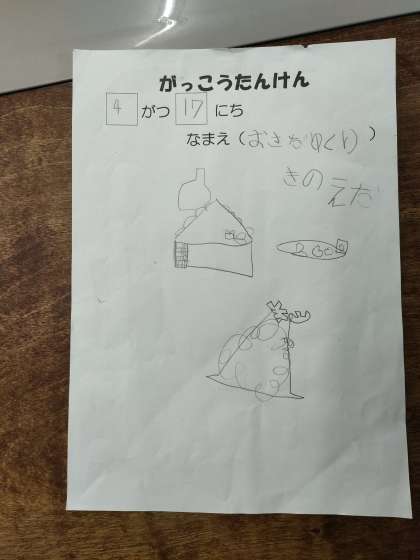 がっこうたんけん
4 がつ 17 にち
なまえ（おさだゆくり）
きのえだ